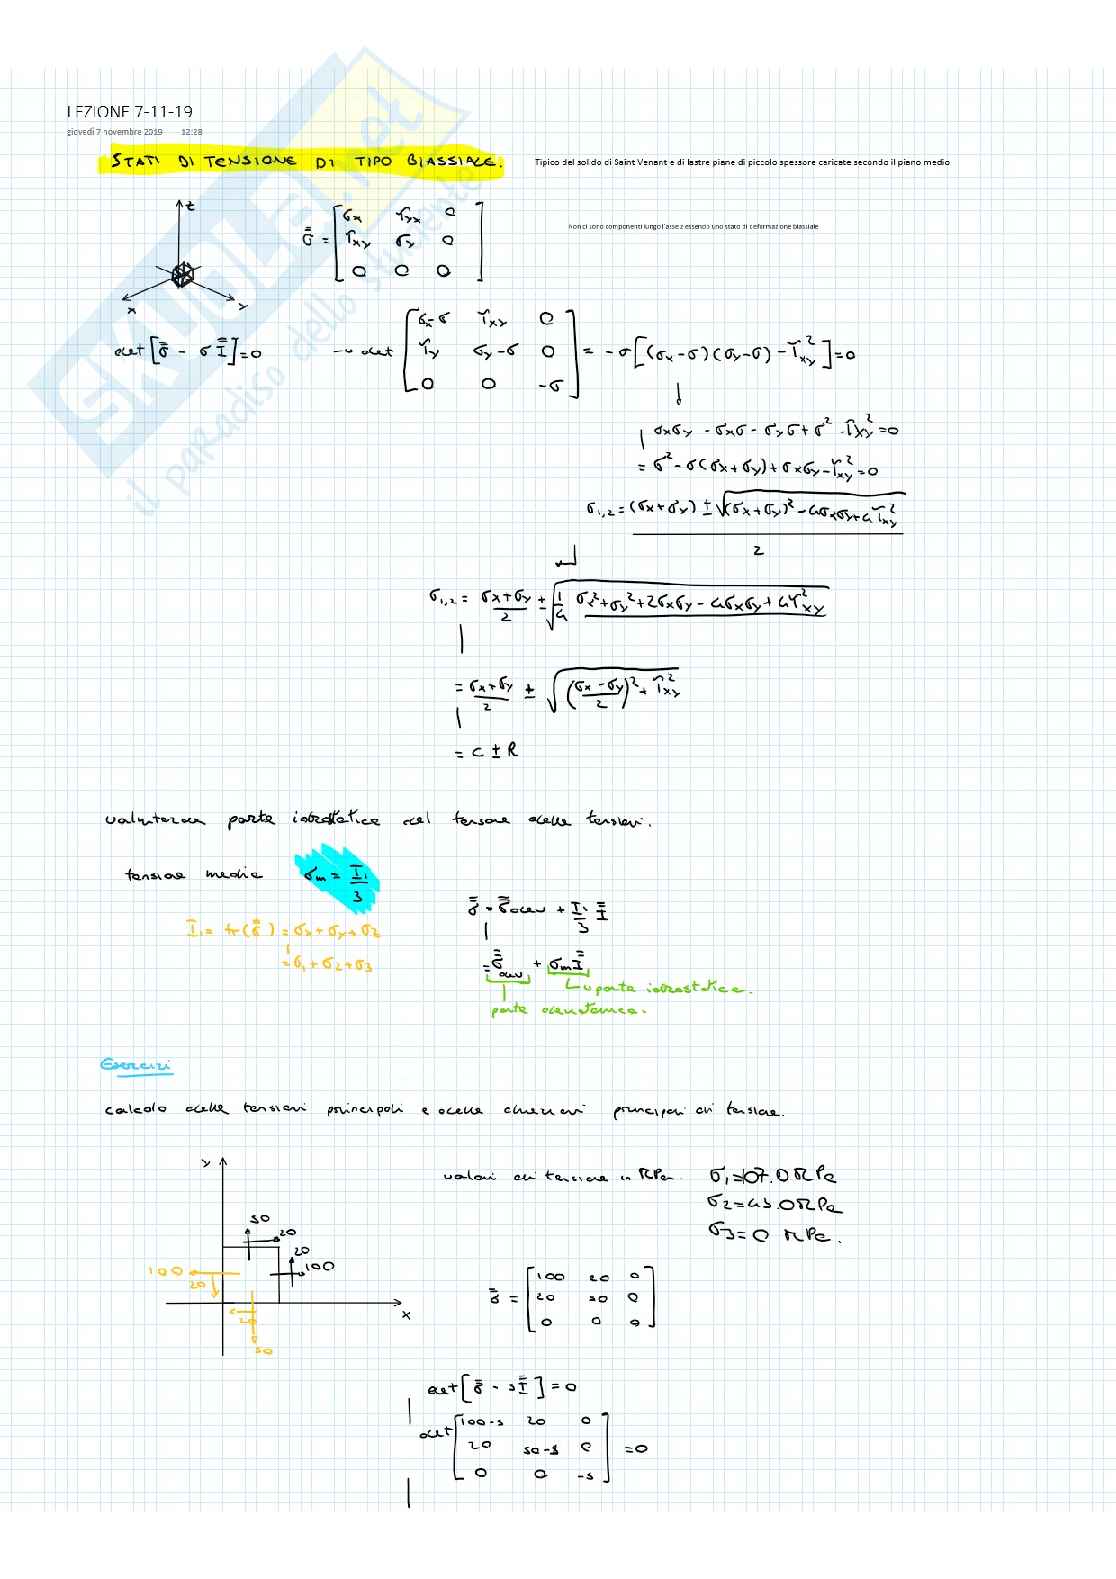 LEZIONE 7-11-19
giovedì 7 novembre 2019 12:28
STATI DI TENSIONE DI TIPO BIASSIALE.
Tipico del solido di Saint Venant e di lastre piane di piccolo spessore caricate secondo il piano medio
Non ci sono componenti lungo l'asse z essendo uno stato di deformazione biassiale
z
x
y
σ̿ = [σx τyx 0
τxy σy 0
0 0 0]
det[σ̿ - σI̿]=0 → det [σx-σ τxy 0
τy σy-σ 0
0 0 -σ] = -σ[(σx-σ)(σy-σ)-τxy²]=0
σxσy - σxσ - σyσ + σ² - τxy² =0
= σ² - σ(σx+σy) + σxσy - τxy² =0
σ1,2 = (σx+σy) ± √(σx+σy)² - 4σxσy + 4τxy²
2
σ1,2 = σx+σy/2 ± √1/4 σx²+σy²+2σxσy-4σxσy+4τ²xy
= σx+σy/2 ± √(σx-σy/2)² + τxy²
= C ± R
valutazione parte idrostatica del tensore delle tensioni.
tensione media σm = I1/3
I1 = tr(σ̿) = σx+σy+σz
= σ1+σ2+σ3
σ̿ = σ̿dev + I1/3 I̿
= σ̿dev + σm I̿
↳ parte idrostatica.
parte deviatorica.
Esercizi
calcolo delle tensioni principali e delle direzioni principali di tensione.
valori di tensione in MPa.
σ1=107.0MPa
σ2=43.0MPa
σ3=0 MPa.
y
50
20
20
100
100
20
20
50
x
σ̿ = [100 20 0
20 50 0
0 0 0]
det[σ̿ - sI̿]=0
det[100-s 20 0
20 50-s 0
0 0 -s] =0
SKUOLA.net
il paradiso dello studente